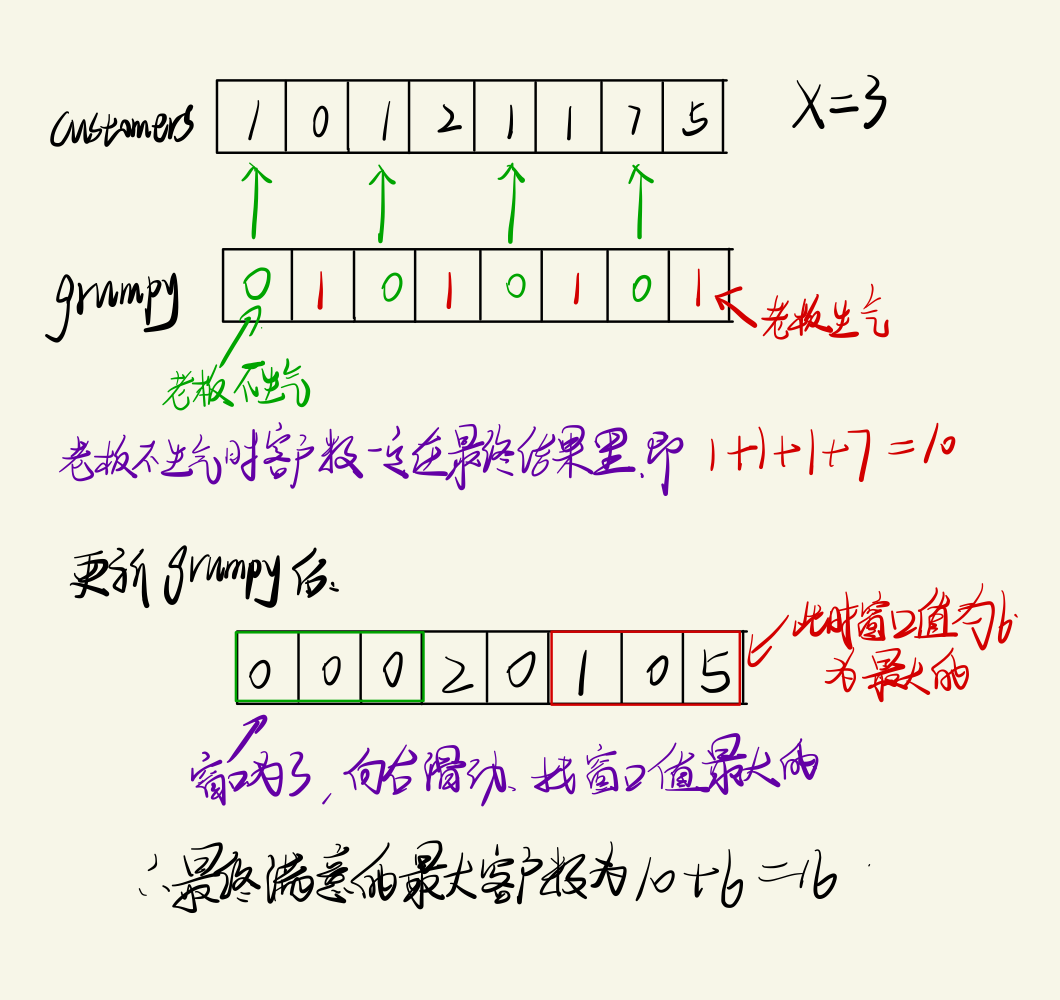 customers 1 0 1 2 1 1 7 5 X=3
grumpy 0 1 0 1 0 1 0 1 老板生气
老板不生气
老板不生气时客户数一定在最终结果里.即 1+1+1+7=10
更新grumpy后:
0 0 0 2 0 1 0 5 此时窗口值为6
为最大的
窗口为3,向右滑动、找窗口值最大的
∴最终满意的最大客户数为10+6=16